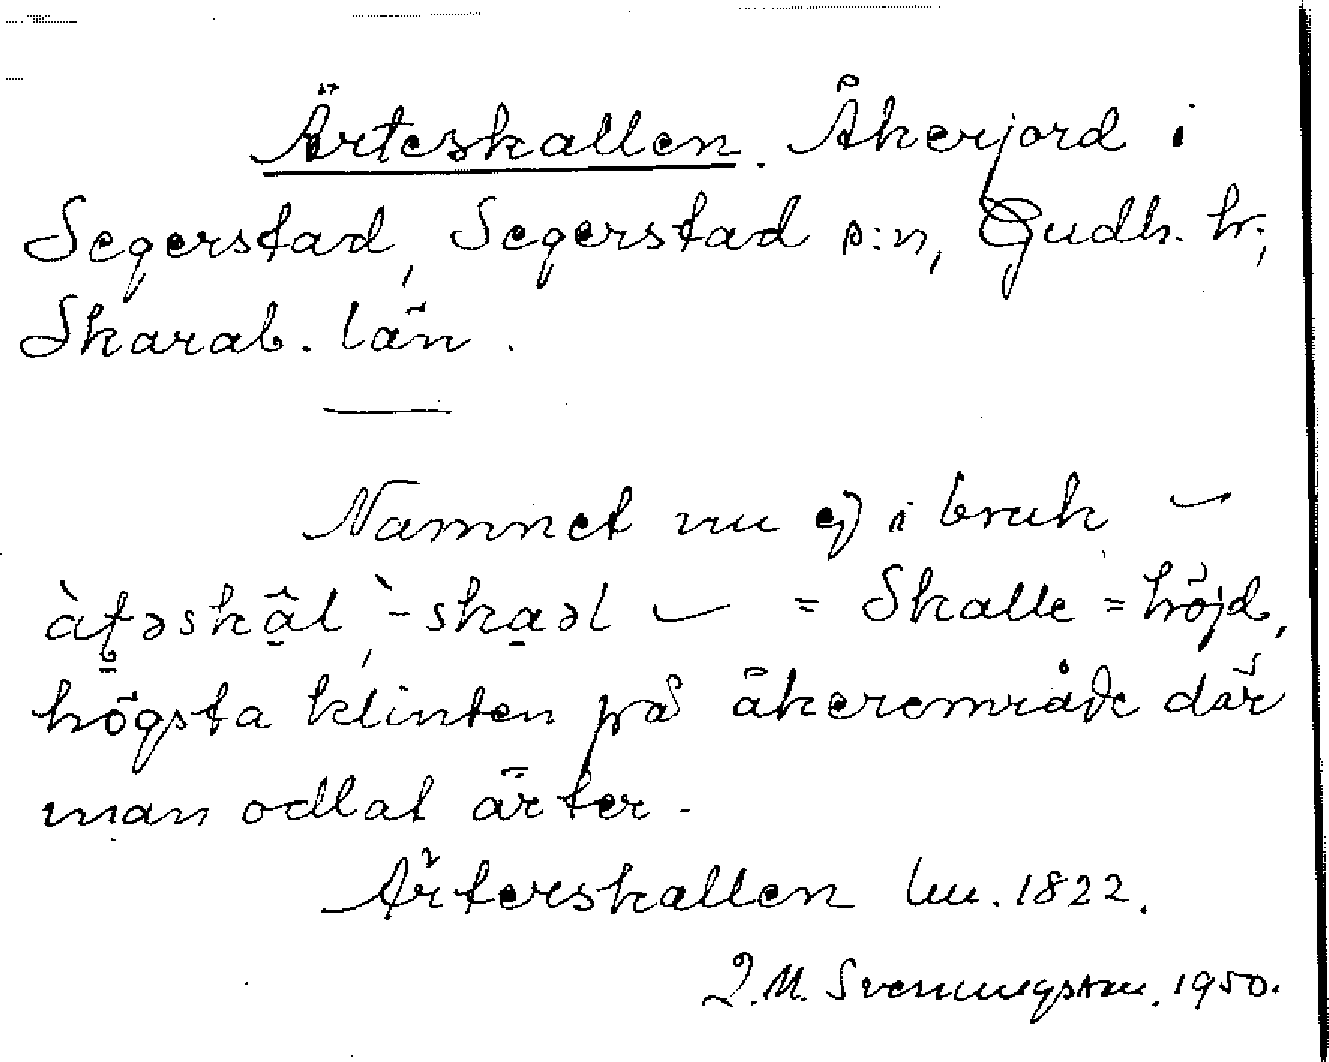 Ärteskallen. Åkerjord i
Segerstad, Segerstad s:n, Gudh. hr,
Skarab. län.
Namnet nu ej i bruk –
= Skalle = höjd,
högsta klinten på åkerområde där
man odlat ärter.
Ärterskallen lm. 1822.
J. M. Svenungsson. 1950.